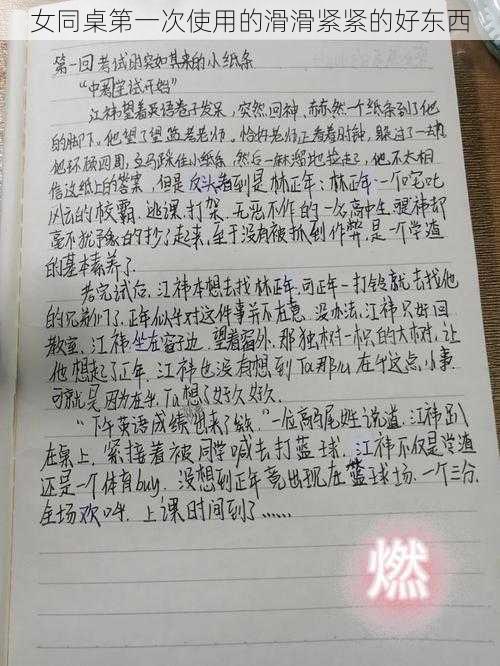 女同桌第一次使用的滑滑紧紧的好东西
第一回考试时突如其来的小纸条
"中考考试开始"
江祎望着英语卷子发呆,突然回神,赫然一个纸条到了他
的脚下,他望了望监考老师。恰好老师正看着时钟,躲过了一劫
他环顾四周,立马踩住小纸条,然后一麻溜地捡起了,他不太相
信这纸上的答案,但是反头看到是林正年;林正年,一个叱咤
风云的校霸、逃课、打架、无恶不作的一名高中生,江祎却
毫不犹豫的抄了起来,至于没有被抓到作弊,是一个学渣
的基本素养了
考完试后,江祎本想去找林正年,可正年一打铃就去找他
的兄弟们了,正年似乎对这件事并不在意,没办法,江祎只好回
教室,江祎坐在窗子边,望着窗外,那独树一枳的大树,让
他想起了正年,江祎也没有想到Ta那么在乎这点小事.
可就是因为在乎,Ta想了好久好久.
"下午英语成绩出来了欸,"一位高马尾姓说道,江祎趴
在桌上,紧接着被同学喊去打蓝球,江祎不仅是学渣
还是一个体育buy,没想到正年竟出现在篮球场,一个三分,
全场欢呼,上课时间到了......
燃